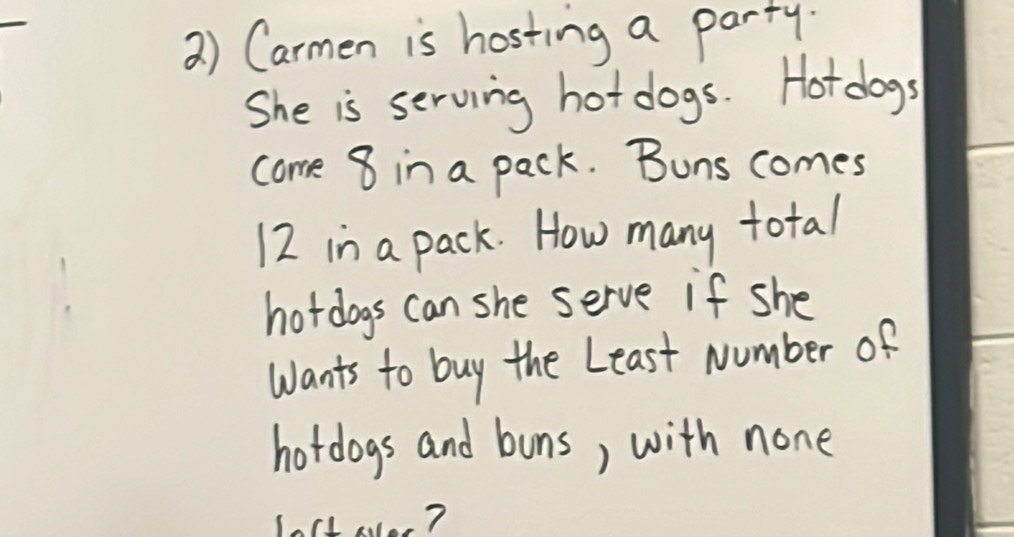 2) Carmen is hosting a party.
She is serving hotdogs. Hotdogs
come 8 in a pack. Buns comes
12 in a pack. How many total
hotdogs can she serve if she
wants to buy the Least Number of
hotdogs and buns, with none
left over?